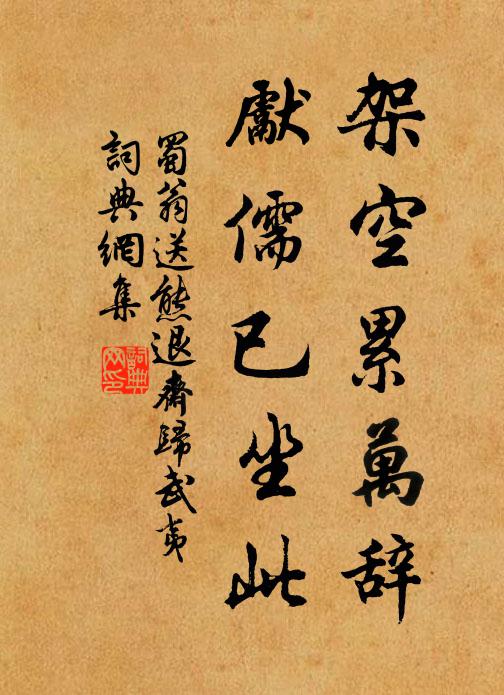 架空累萬辞
獻儒已坐此
蜀翁送熊退齋歸武夷
詞典網集
詞典網印